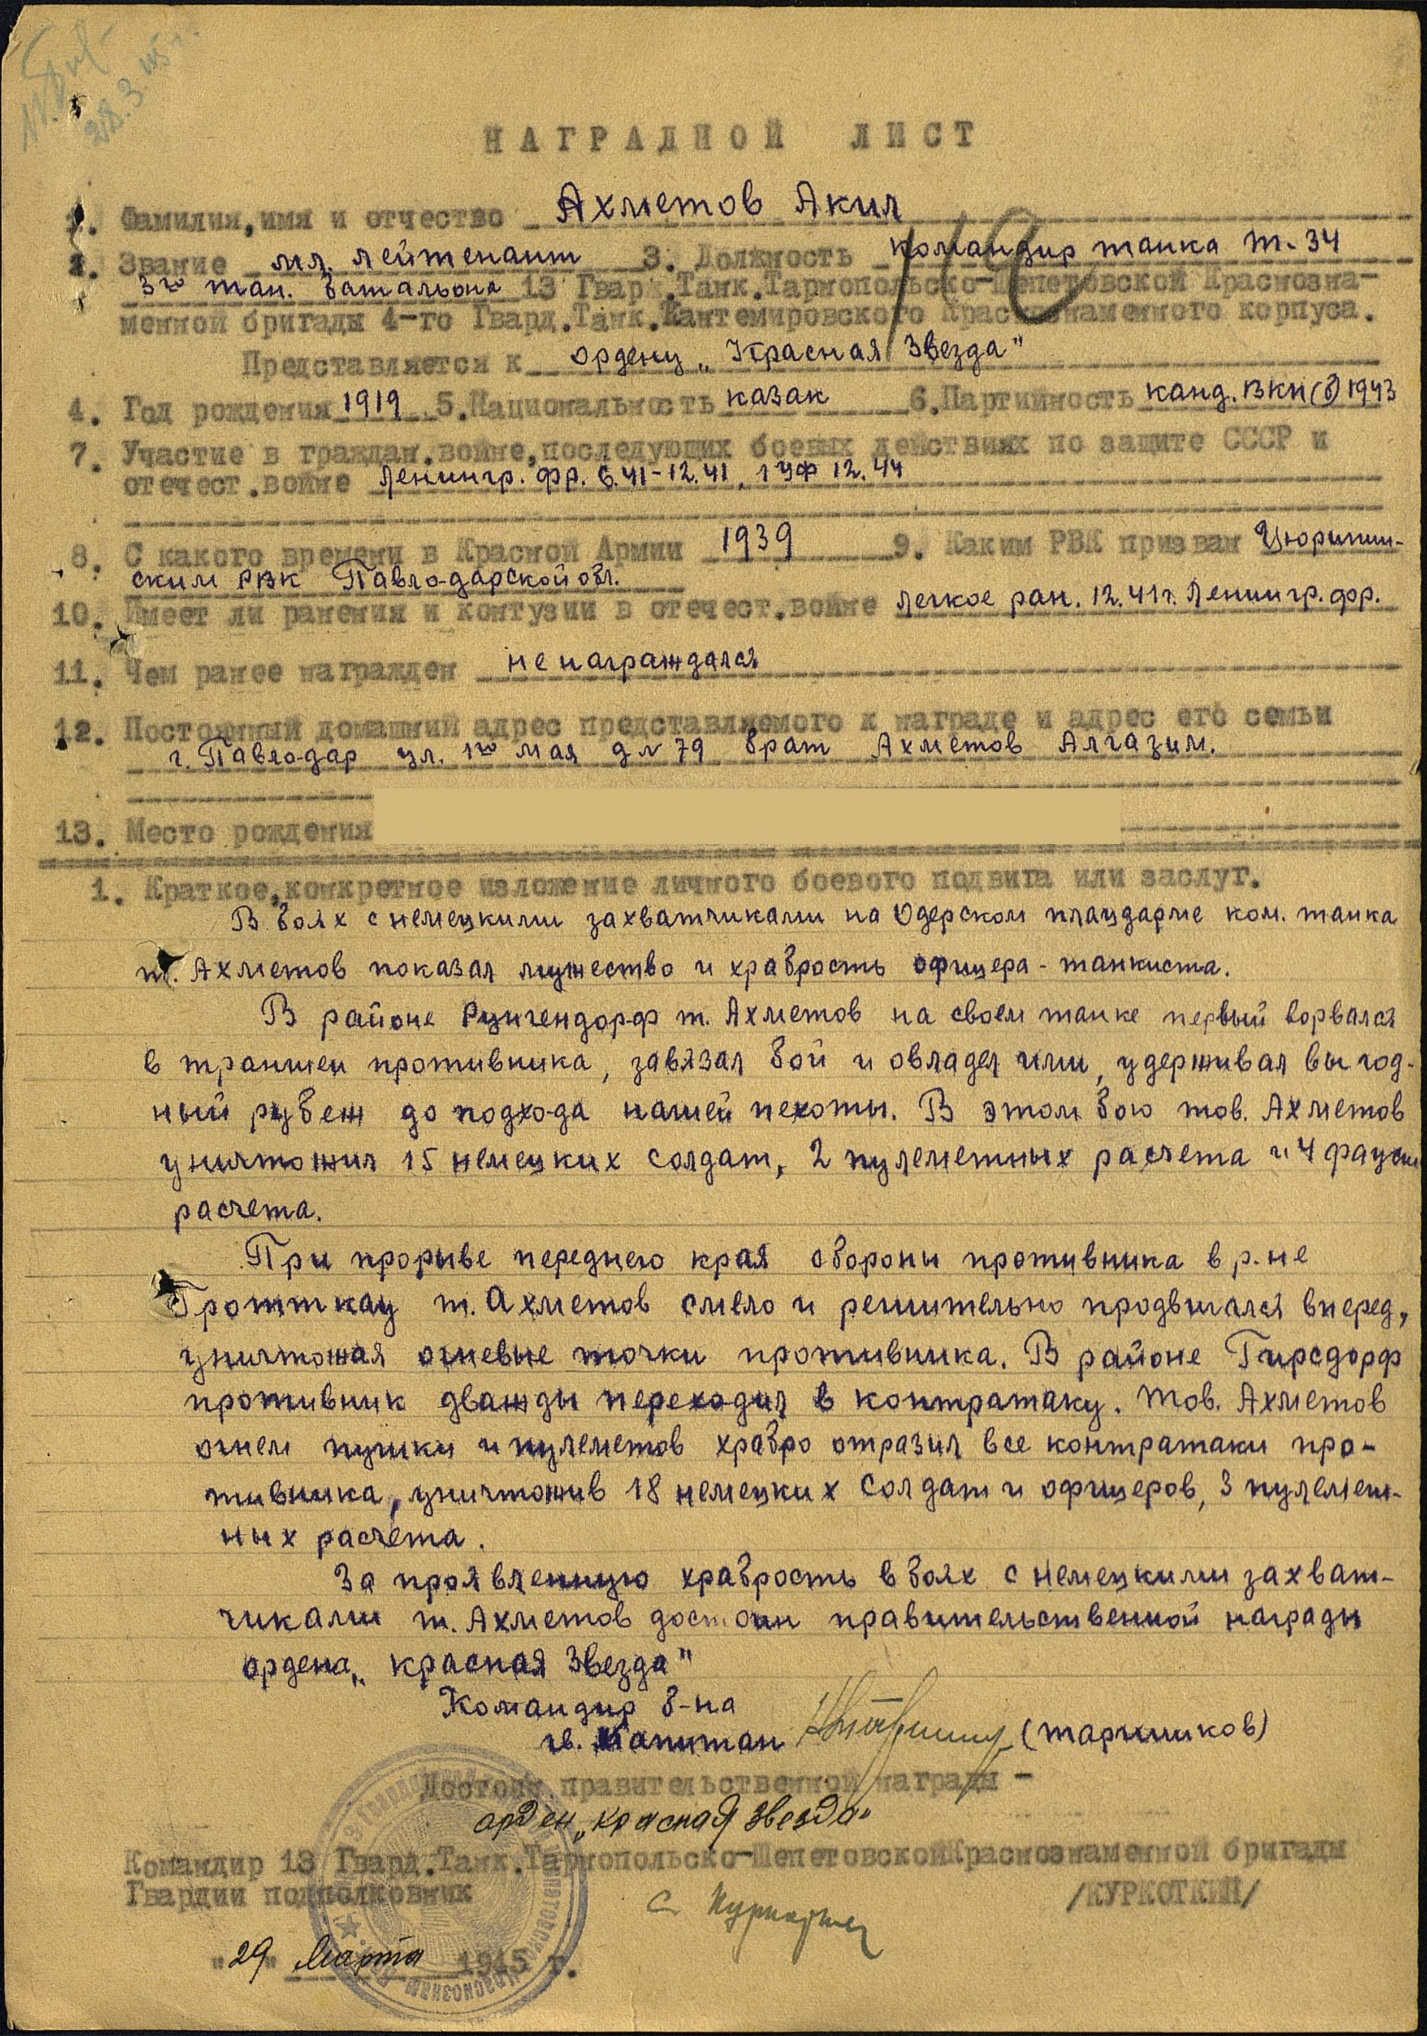 28.3.45 г.
НАГРАДНОЙ ЛИСТ
1. Фамилия, имя и отчество Ахметов Акил
118
2. Звание мл. лейтенант 3. Должность командир танка Т-34
3го тан. батальона 13 Гвард.Танк.Тарнопольско-Шепетовской Краснозна-
менной бригады 4-го Гвард.Танк.Кантемировского Краснознаменного корпуса.
Представляется к ордену „Красная Звезда"
4. Год рождения 1919 5. Национальность казак 6. Партийность канд. ВКП(б) 1943
7. Участие в граждан.войне, последующих боевых действиях по защите СССР и
отечест.войне Ленингр. фр. 6.41-12.41, 1 УФ 12.44
8. С какого времени в Красной Армии 1939 9. Каким РВК призван Цюрипин-
ским РВК Павлодарской обл.
10. Имеет ли ранения и контузии в отечест.войне легкое ран. 12.41г. Ленингр. фр.
11. Чем ранее награжден не награждался
12. Постоянный домашний адрес представляемого к награде и адрес его семьи
г. Павлодар ул. 1го мая д № 79 брат Ахметов Алгазим.
13. Место рождения
1. Краткое, конкретное изложение личного боевого подвига или заслуг.
В боях с немецкими захватчиками на Одерском плацдарме ком. танка
т. Ахметов показал мужество и храбрость офицера-танкиста.
В районе Рунгендорф т. Ахметов на своем танке первый ворвался
в траншеи противника, завязал бой и овладел ими, удерживал выгод-
ный рубеж до подхода нашей пехоты. В этом бою тов. Ахметов
уничтожил 15 немецких солдат, 2 пулеметных расчета и 4 фауст
расчета.
При прорыве переднего края обороны противника в р-не
Гротткау т. Ахметов смело и решительно продвигался вперед,
уничтожая огневые точки противника. В районе Гирсдорф
противник дважды переходил в контратаку. Тов. Ахметов
огнем пушки и пулеметов храбро отразил все контратаки про-
тивника, уничтожив 18 немецких солдат и офицеров, 3 пулемет-
ных расчета.
За проявленную храбрость в боях с немецкими захват-
чиками т. Ахметов достоин правительственной награды
ордена „Красная Звезда"
Командир б-на
гв. Капитан (Таршиков)
Достоин правительственной награды -
орден „Красная Звезда"
Командир 13 Гвард.Танк.Тарнопольско-Шепетовской Краснознаменной бригады
Гвардии подполковник /КУРКОТКИН/
"29" Марта 1945 г.